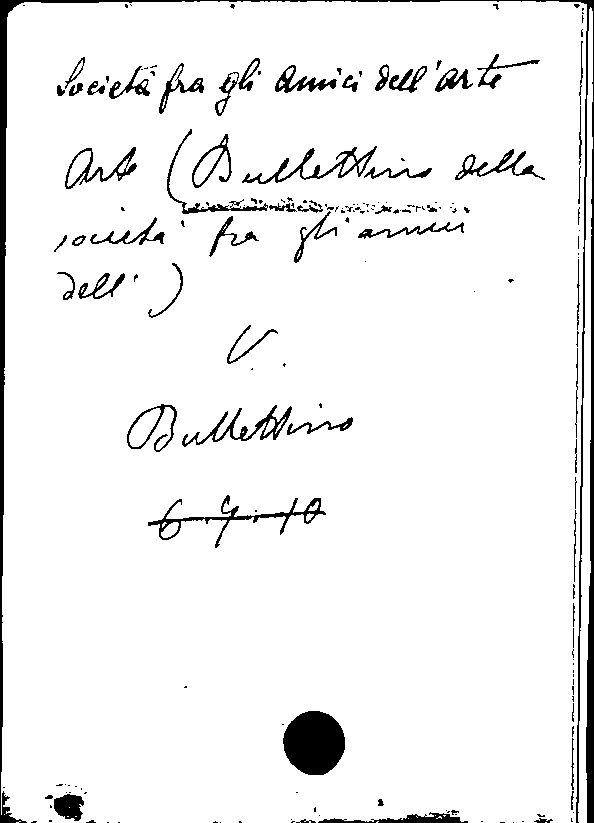 Società fra gli Amici dell'Arte
Arte (Bullettino della
società fra gli amici
dell')
V.
Bullettino
6.7.10